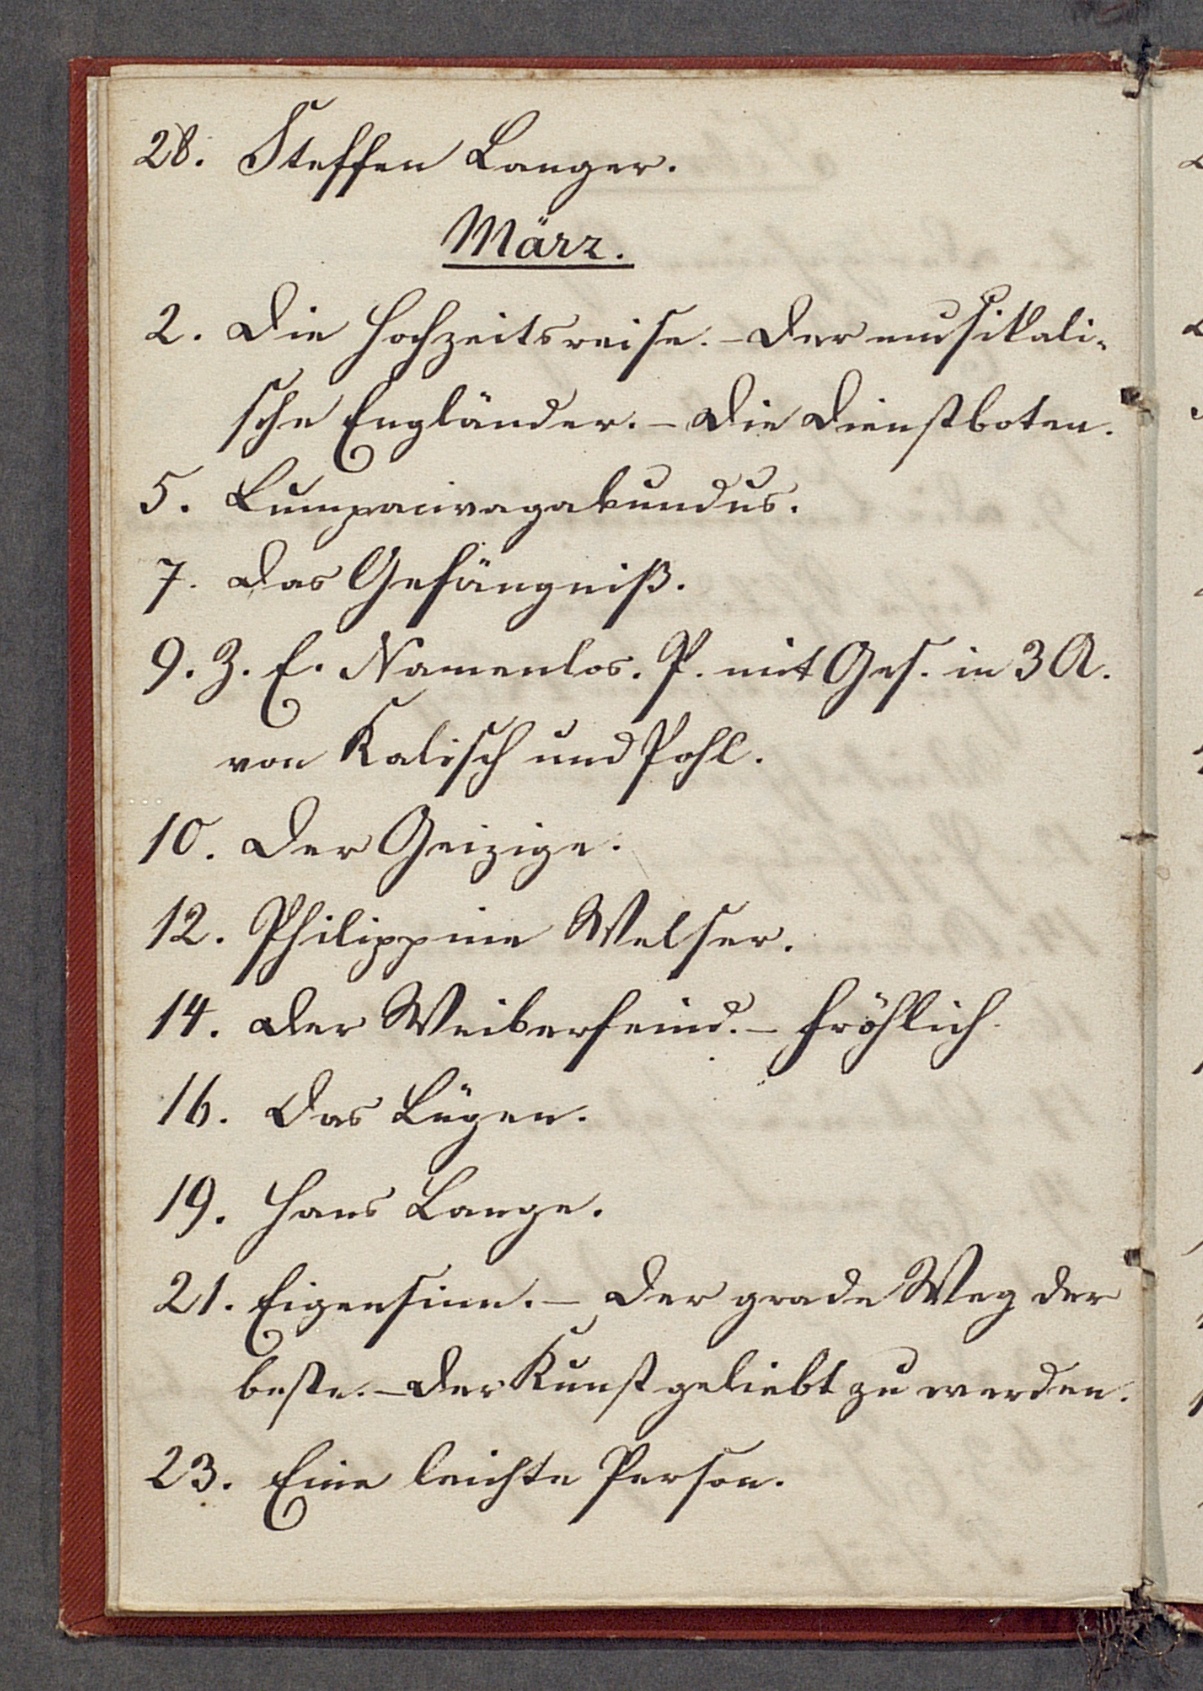 28. Steffen Langer.
März.
2. Die Hochzeitsreise. – Der musikali-
sche Engländer. – Die Dienstboten.
5. Lumpacivagabundus.
7. Das Gefängniß.
9. Z. E. Namenlos. P. mit Ges. in 3 A.
von Kalisch und Pohl.
10. Der Geizige.
12. Philippine Welser.
14. Der Weiberfeind. – Fröhlich.
16. Das Lügen.
19. Hans Lange.
21. Eigensinn. – Der grade Weg der
beste. – Der Kunst geliebt zu werden.
23. Eine leichte Person.